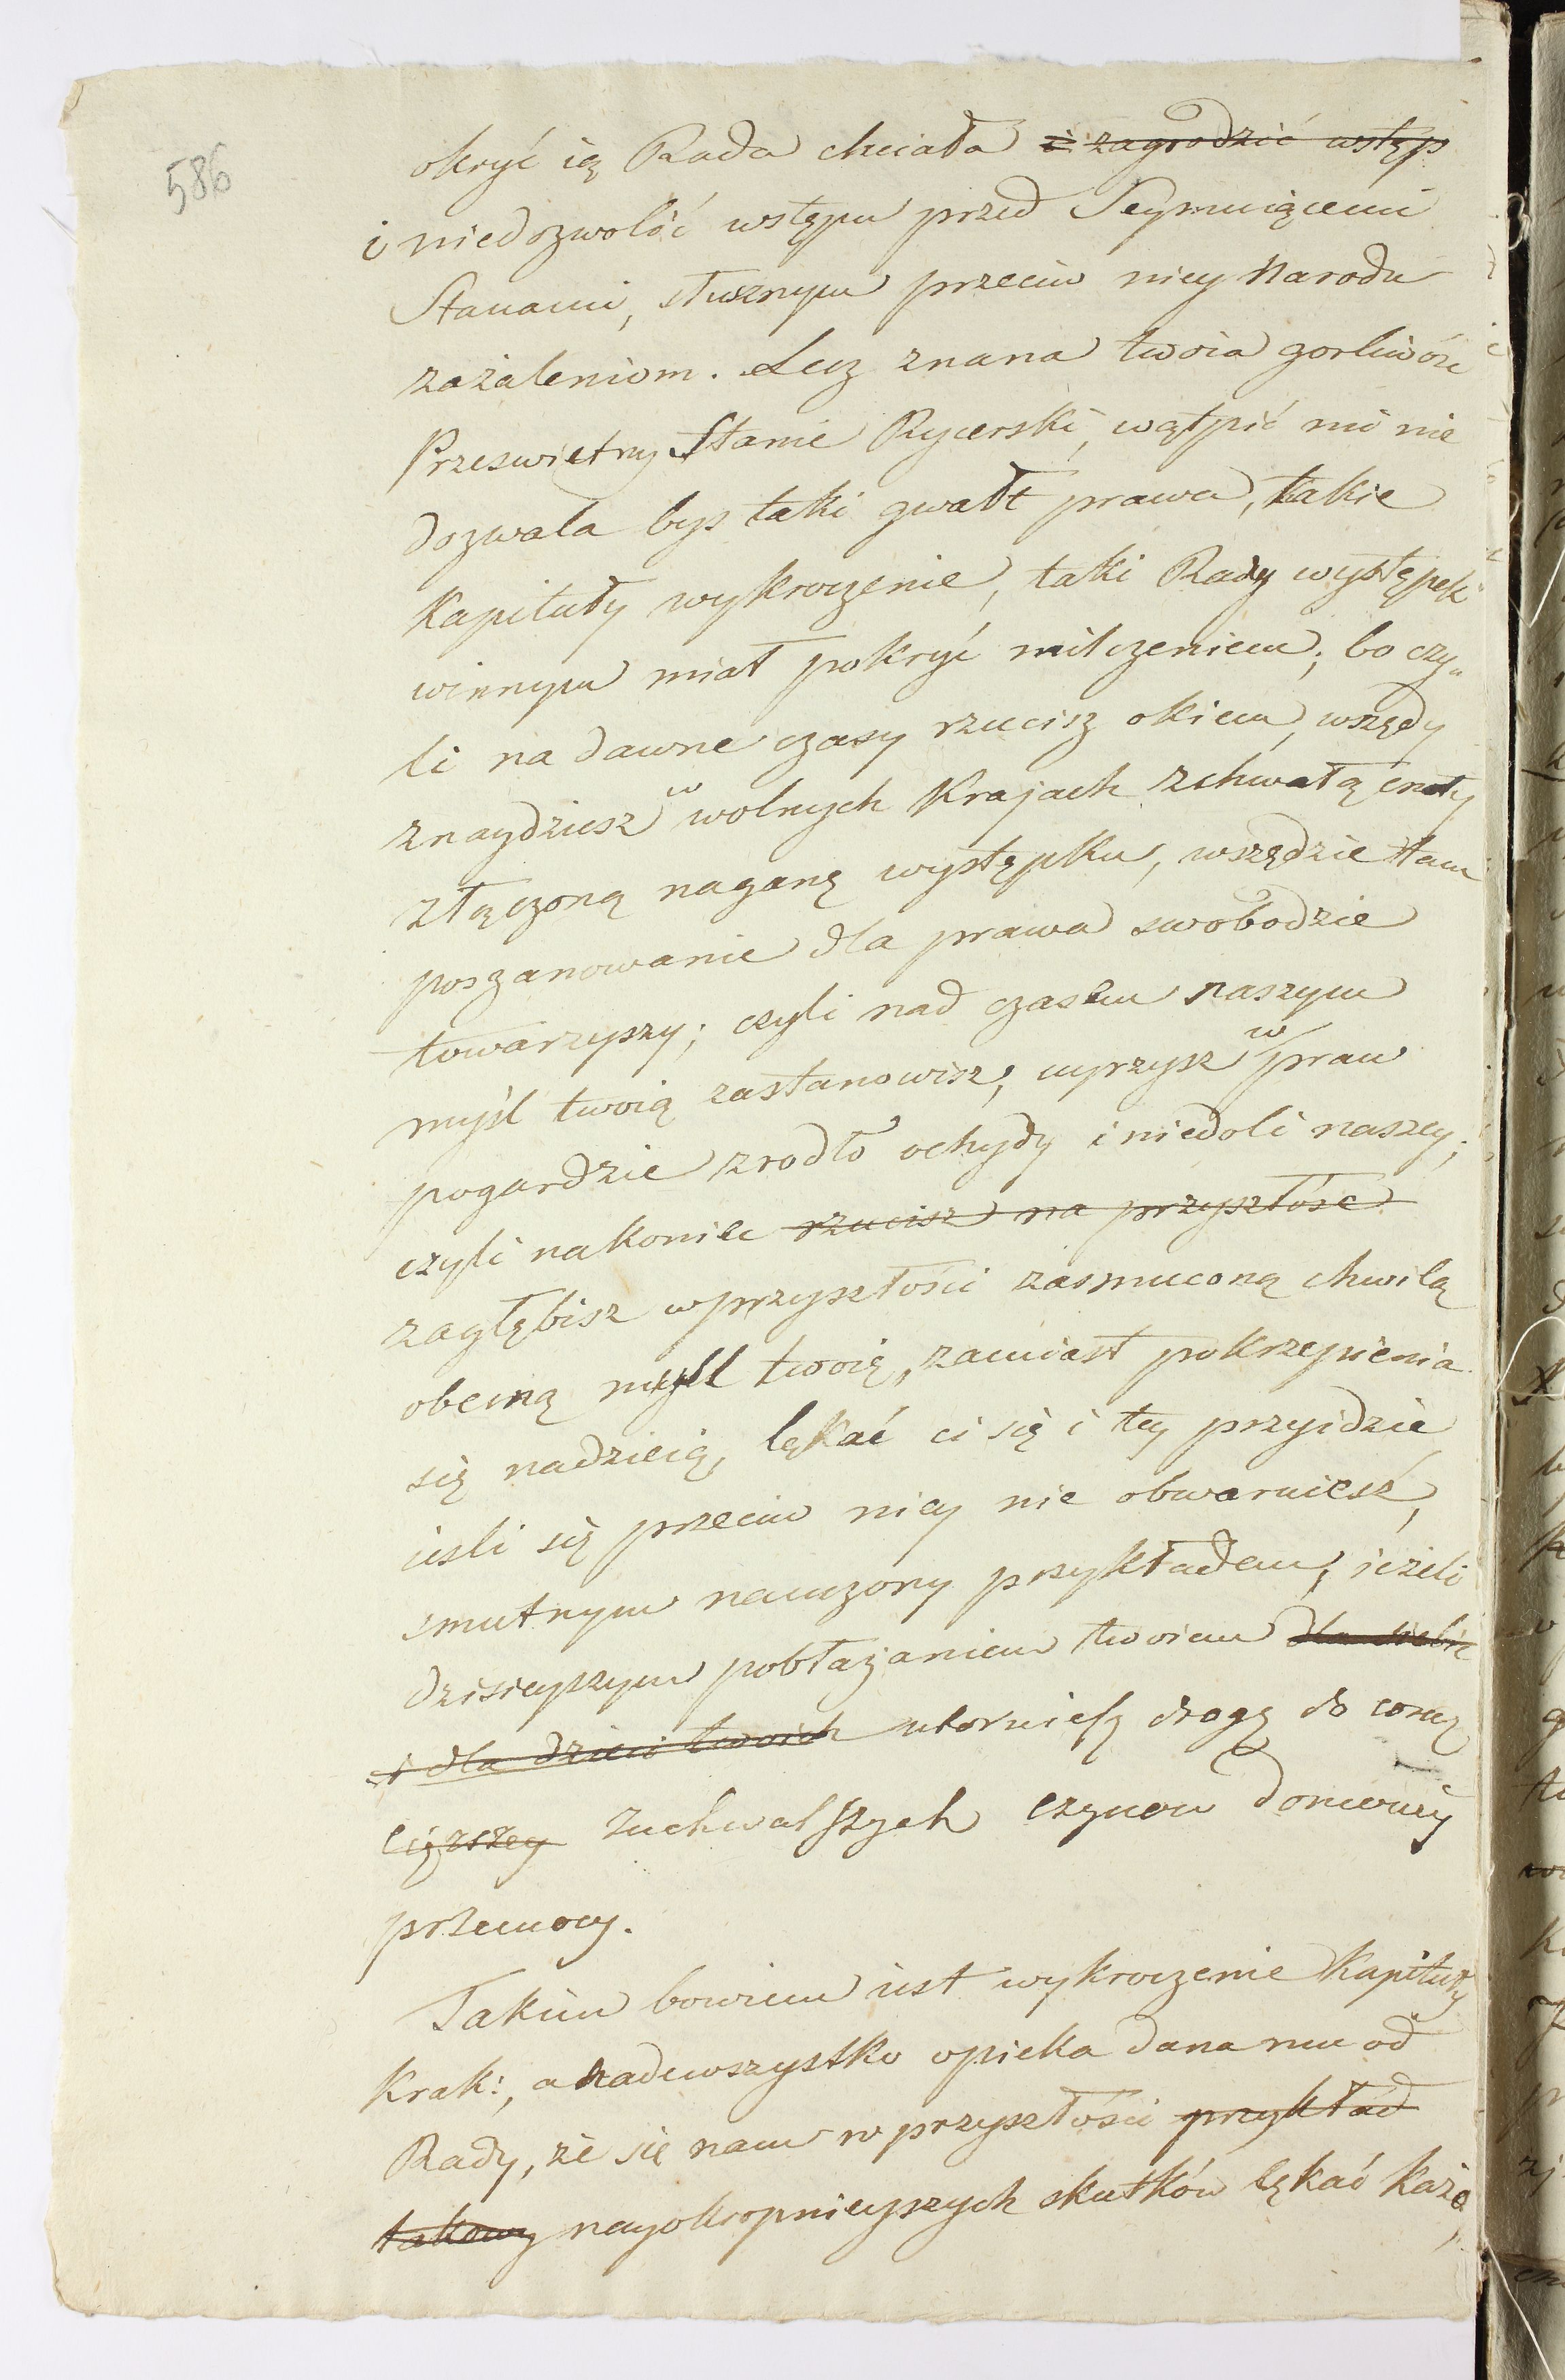 586
okryć ią Rada chciała i zagrodzić wstęp
i niedozwolić wstępu przed Seymuiącemi
Stanami, słusznym przeciw niey Narodu
zażaleniom. Lecz znana twoia gorliwość
Prześwietny Stanie Rycerski, wątpić mi nie
dozwala byś taki gwałt prawa, takie
Kapituły wykroczenie, taki Rady występek
winnym miał pokryć milczeniem; bo czy„
li na dawne czasy rzucisz okiem, wszędy
znaydziesz w wolnych Krajach z chwałą cnoty
złączoną naganę występku, wszędzie tam
poszanowanie dla prawa swobodzie
towarzyszy; czyli nad czasem naszym
myśl twoią zastanowisz, uyrzysz w praw
pogardzie zrodło ochydy i niedoli naszey;
czyli nakoniec rzucisz na przyszłość
zagłębisz w przyszłości zasmuconą chwilą
obecną myśl twoię, zamiast pokrzepienia
się nadzieią, lękać ci się i tey przyidzie
iesli się przeciw niey nie obwaruiesz,
smutnym nauczony przykładem, ieżeli
dzisieyszym pobłażaniem twoiem dla siebie
i dla dzieci twoich utoruiesz drogę do coraz
cięższey zuchwalszych czynow domowey
przemocy.
Takim bowiem iest wykroczenie Kapituły
Krak:, a nadewszystko opieka dana mu od
Rady, że się nam w przyszłości przykład
takowy nayokropnieyszych skutków lękać każe,